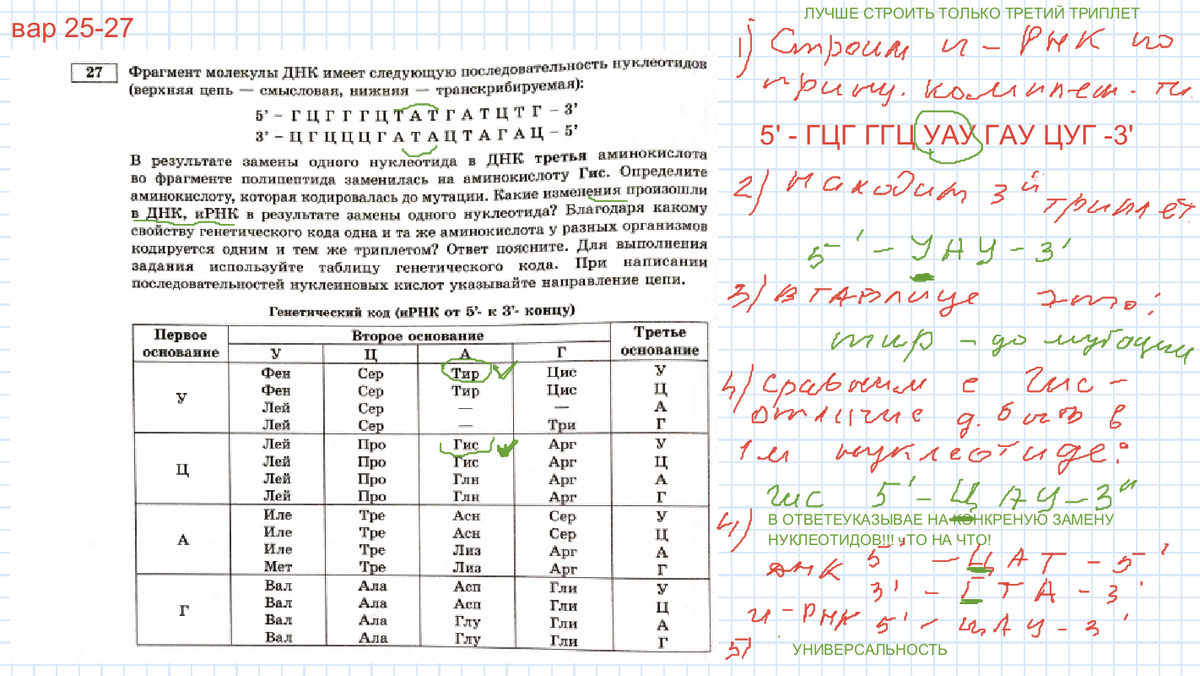 вар 25-27
27
Фрагмент молекулы ДНК имеет следующую последовательность нуклеотидов
(верхняя цепь — смысловая, нижняя — транскрибируемая):
5’ – Г Ц Г Г Г Ц Т А Т Г А Т Ц Т Г – 3’
3’ – Ц Г Ц Ц Ц Г А Т А Ц Т А Г А Ц – 5’
В результате замены одного нуклеотида в ДНК третья аминокислота
во фрагменте полипептида заменилась на аминокислоту Гис. Определите
аминокислоту, которая кодировалась до мутации. Какие изменения произошли
в ДНК, иРНК в результате замены одного нуклеотида? Благодаря какому
свойству генетического кода одна и та же аминокислота у разных организмов
кодируется одним и тем же триплетом? Ответ поясните. Для выполнения
задания используйте таблицу генетического кода. При написании
последовательностей нуклеиновых кислот указывайте направление цепи.
Генетический код (иРНК от 5’- к 3’- концу)
Первое основание Второе основание Третье основание
У Ц А Г
У
Фен Сер Тир Цис У
Фен Сер Тир Цис Ц
Лей Сер — — А
Лей Сер — Три Г
Ц
Лей Про Гис Арг У
Лей Про Гис Арг Ц
Лей Про Глн Арг А
Лей Про Глн Арг Г
А
Иле Тре Асн Сер У
Иле Тре Асн Сер Ц
Иле Тре Лиз Арг А
Мет Тре Лиз Арг Г
Г
Вал Ала Асп Гли У
Вал Ала Асп Гли Ц
Вал Ала Глу Гли А
Вал Ала Глу Гли Г
ЛУЧШЕ СТРОИТЬ ТОЛЬКО ТРЕТИЙ ТРИПЛЕТ
1) Строим и - РНК по
принц. комплемент - ти
5' - ГЦГ ГГЦ УАУ ГАУ ЦУГ -3'
2) Находим 3й
триплет
5' - УАУ - 3'
3) В таблице это:
тир - до мутации
4) Сравним с Гис -
отличие д. быть в
1м нуклеотиде:
гис 5' - Ц АУ - 3'
4) В ОТВЕТЕУКАЗЫВАЕ НА КОНКРЕНУЮ ЗАМЕНУ
НУКЛЕОТИДОВ!!! чТО НА ЧТО!
ДНК 5' - Ц А Т - 5'
3' - Г Т А - 3'
и - РНК 5' - ЦАУ - 3'
5) УНИВЕРСАЛЬНОСТЬ